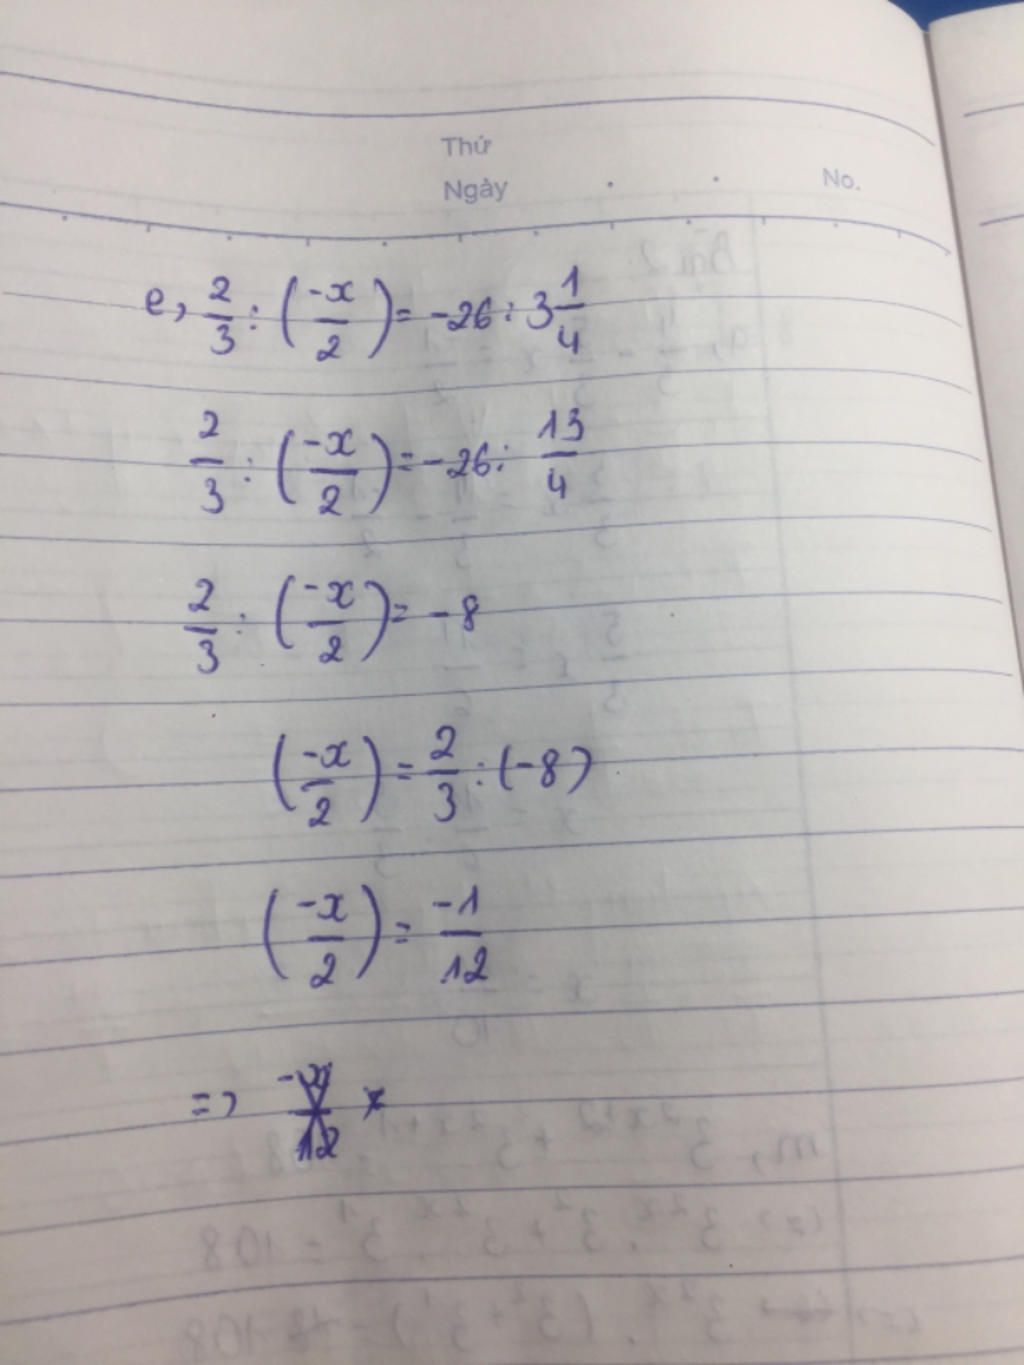 Thứ
Ngày
No.
e, 2/3 : (-x/2) = -26 : 3 1/4
2/3 : (-x/2) = -26 : 13/4
2/3 : (-x/2) = -8
(-x/2) = 2/3 : (-8)
(-x/2) = -1/12
=>